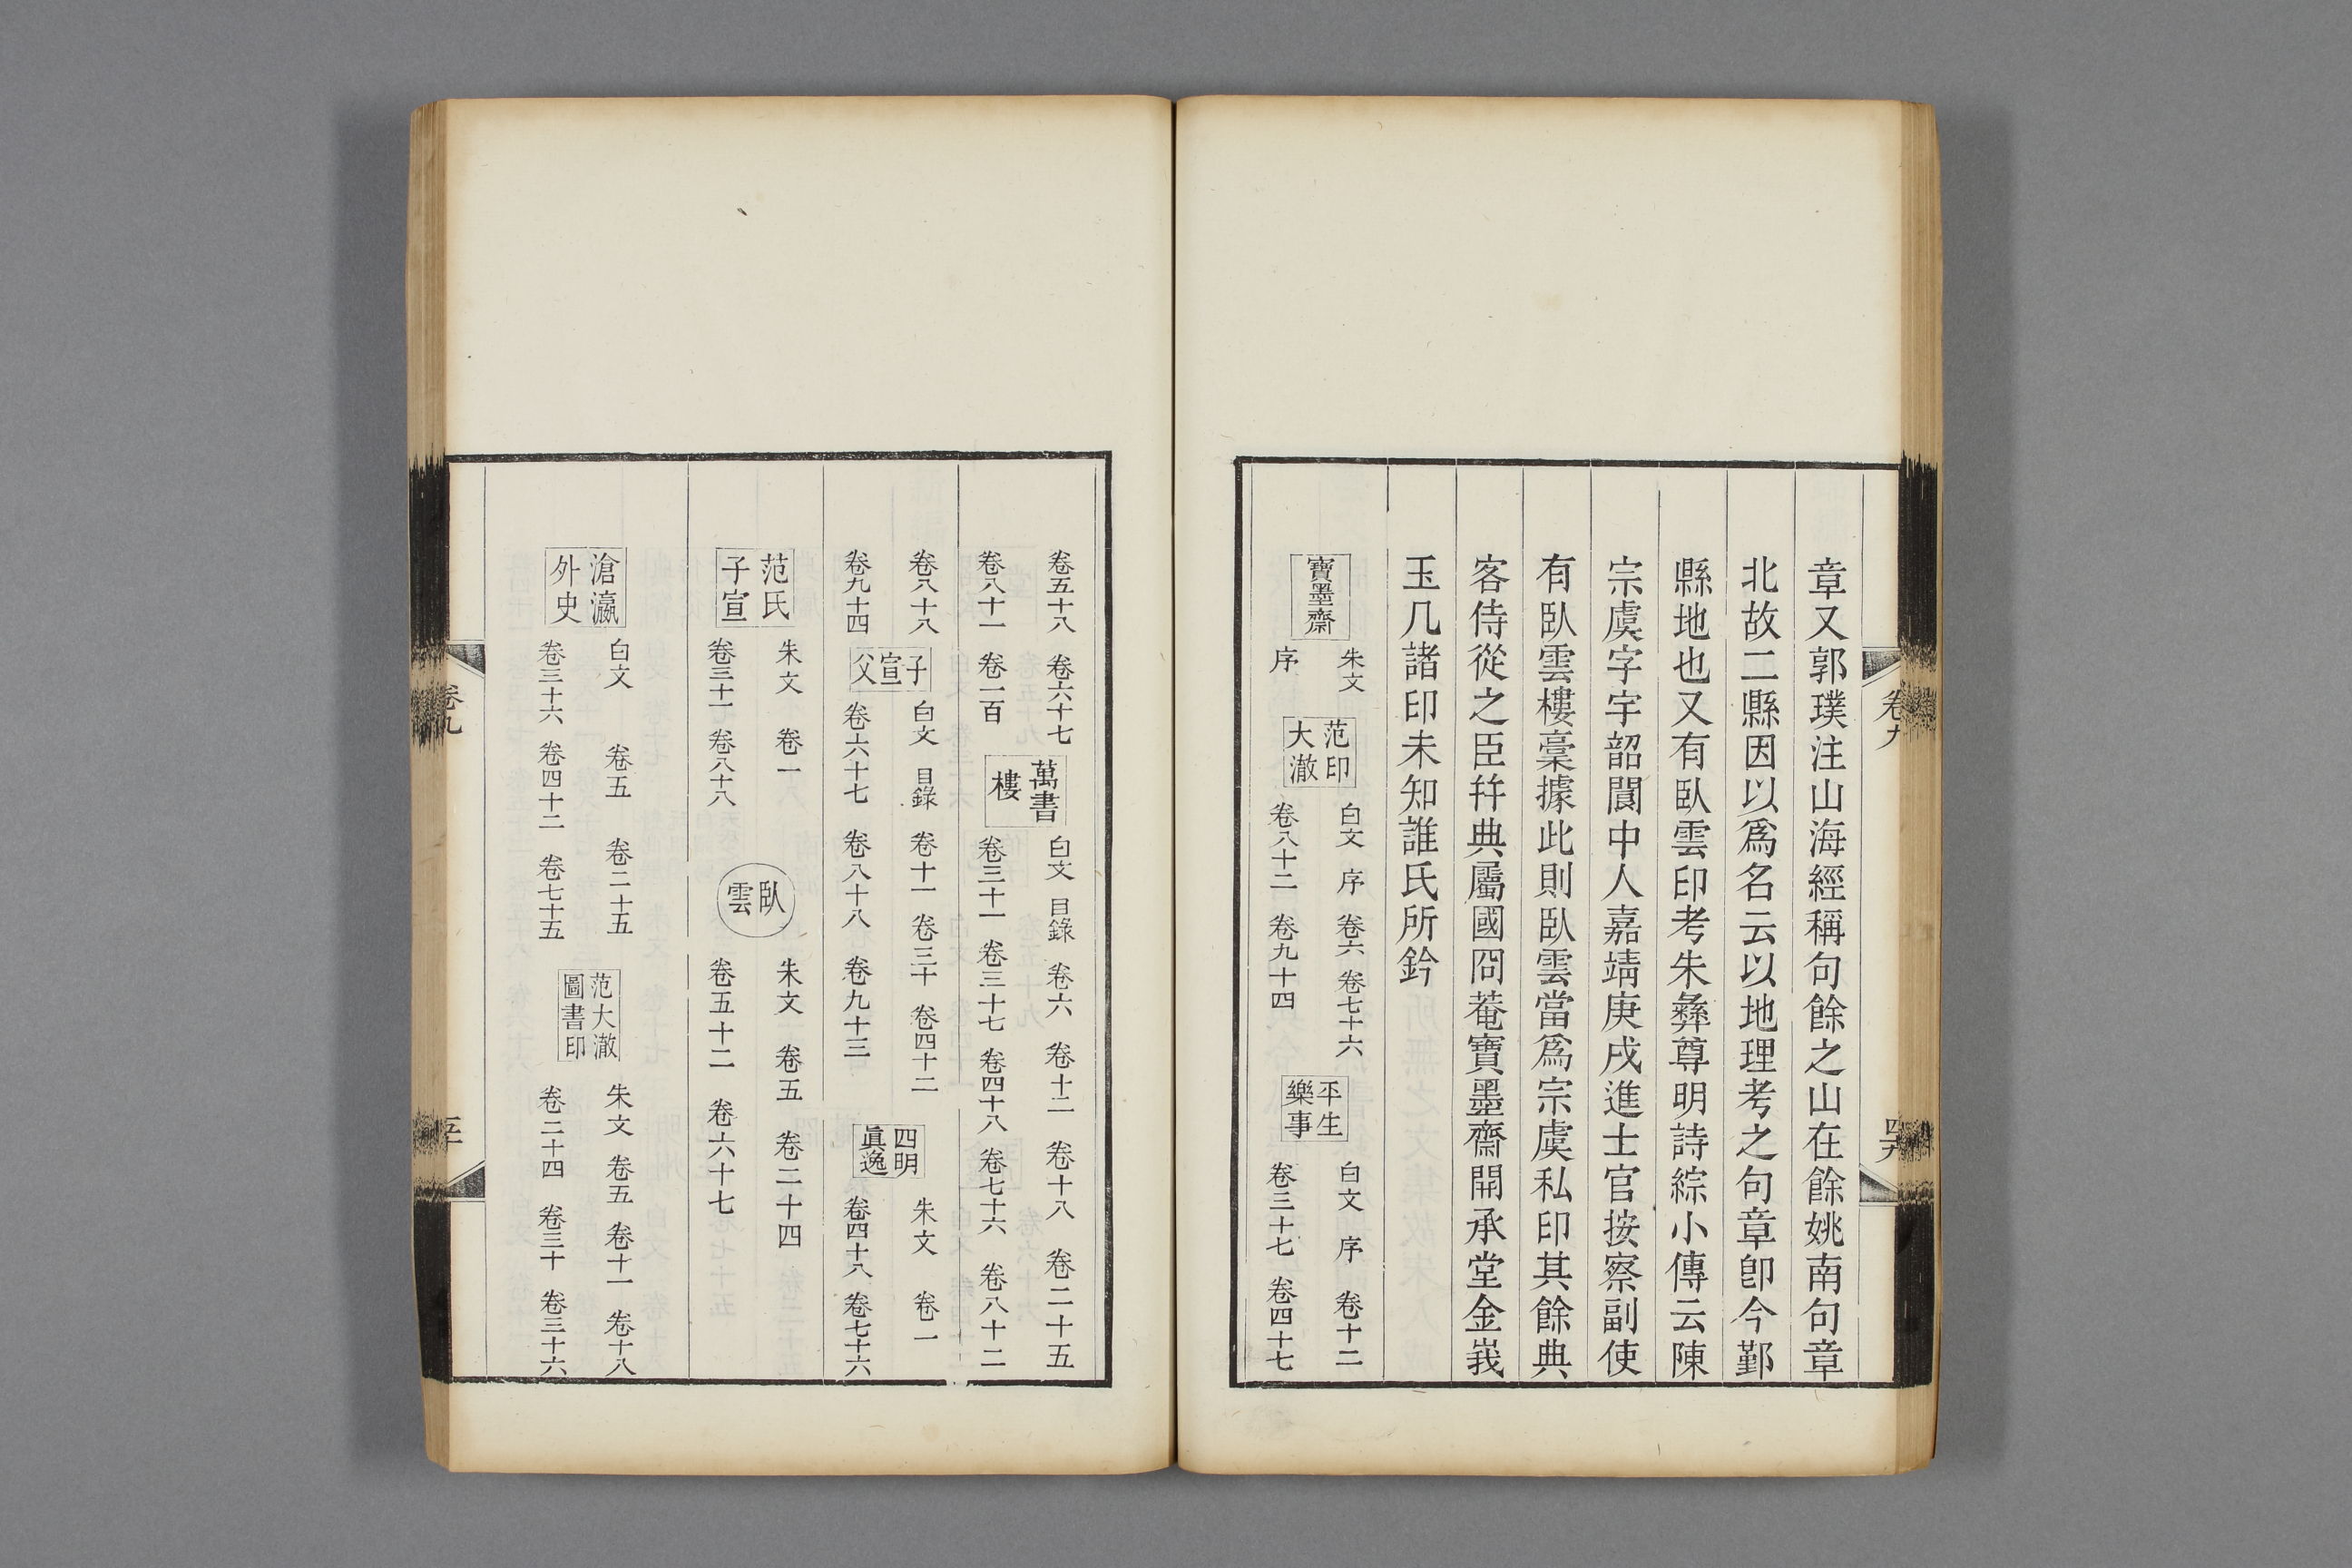 章又郭璞注山海經稱句餘之山在餘姚南句章
北故二縣因以爲名云以地理考之句章卽今鄞
縣地也又有臥雲印考朱彝尊明詩綜小傳云陳
宗虞字宇韶閬中人嘉靖庚戌進士官按察副使
有臥雲樓稾據此則臥雲當爲宗虞私印其餘典
客侍從之臣幷典屬國冏菴寶墨齋開承堂金峩
玉几諸印未知誰氏所鈐
寶墨齋
朱文
序
范印
大澈
白文 序 卷六 卷七十六
卷八十二 卷九十四
平生
樂事
白文 序 卷十二
卷三十七 卷四十七
卷九
四十九
卷五十八 卷六十七
卷八十一 卷一百
萬書
樓
白文 目錄 卷六 卷十二 卷十八 卷二十五
卷三十一 卷三十七 卷四十八 卷七十六 卷八十二
卷八十八
卷九十四
子宣父
白文 目錄 卷十一 卷三十 卷四十二
卷六十七 卷八十八 卷九十三
四明
眞逸
朱文 卷一
卷四十八 卷七十六
范氏
子宣
朱文 卷一
卷三十一 卷八十八
臥雲
朱文 卷五 卷二十四
卷五十二 卷六十七
滄瀛
外史
白文 卷五 卷二十五
卷三十六 卷四十二 卷七十五
范大澈
圖書印
朱文 卷五 卷十一 卷十八
卷二十四 卷三十 卷三十六
卷九